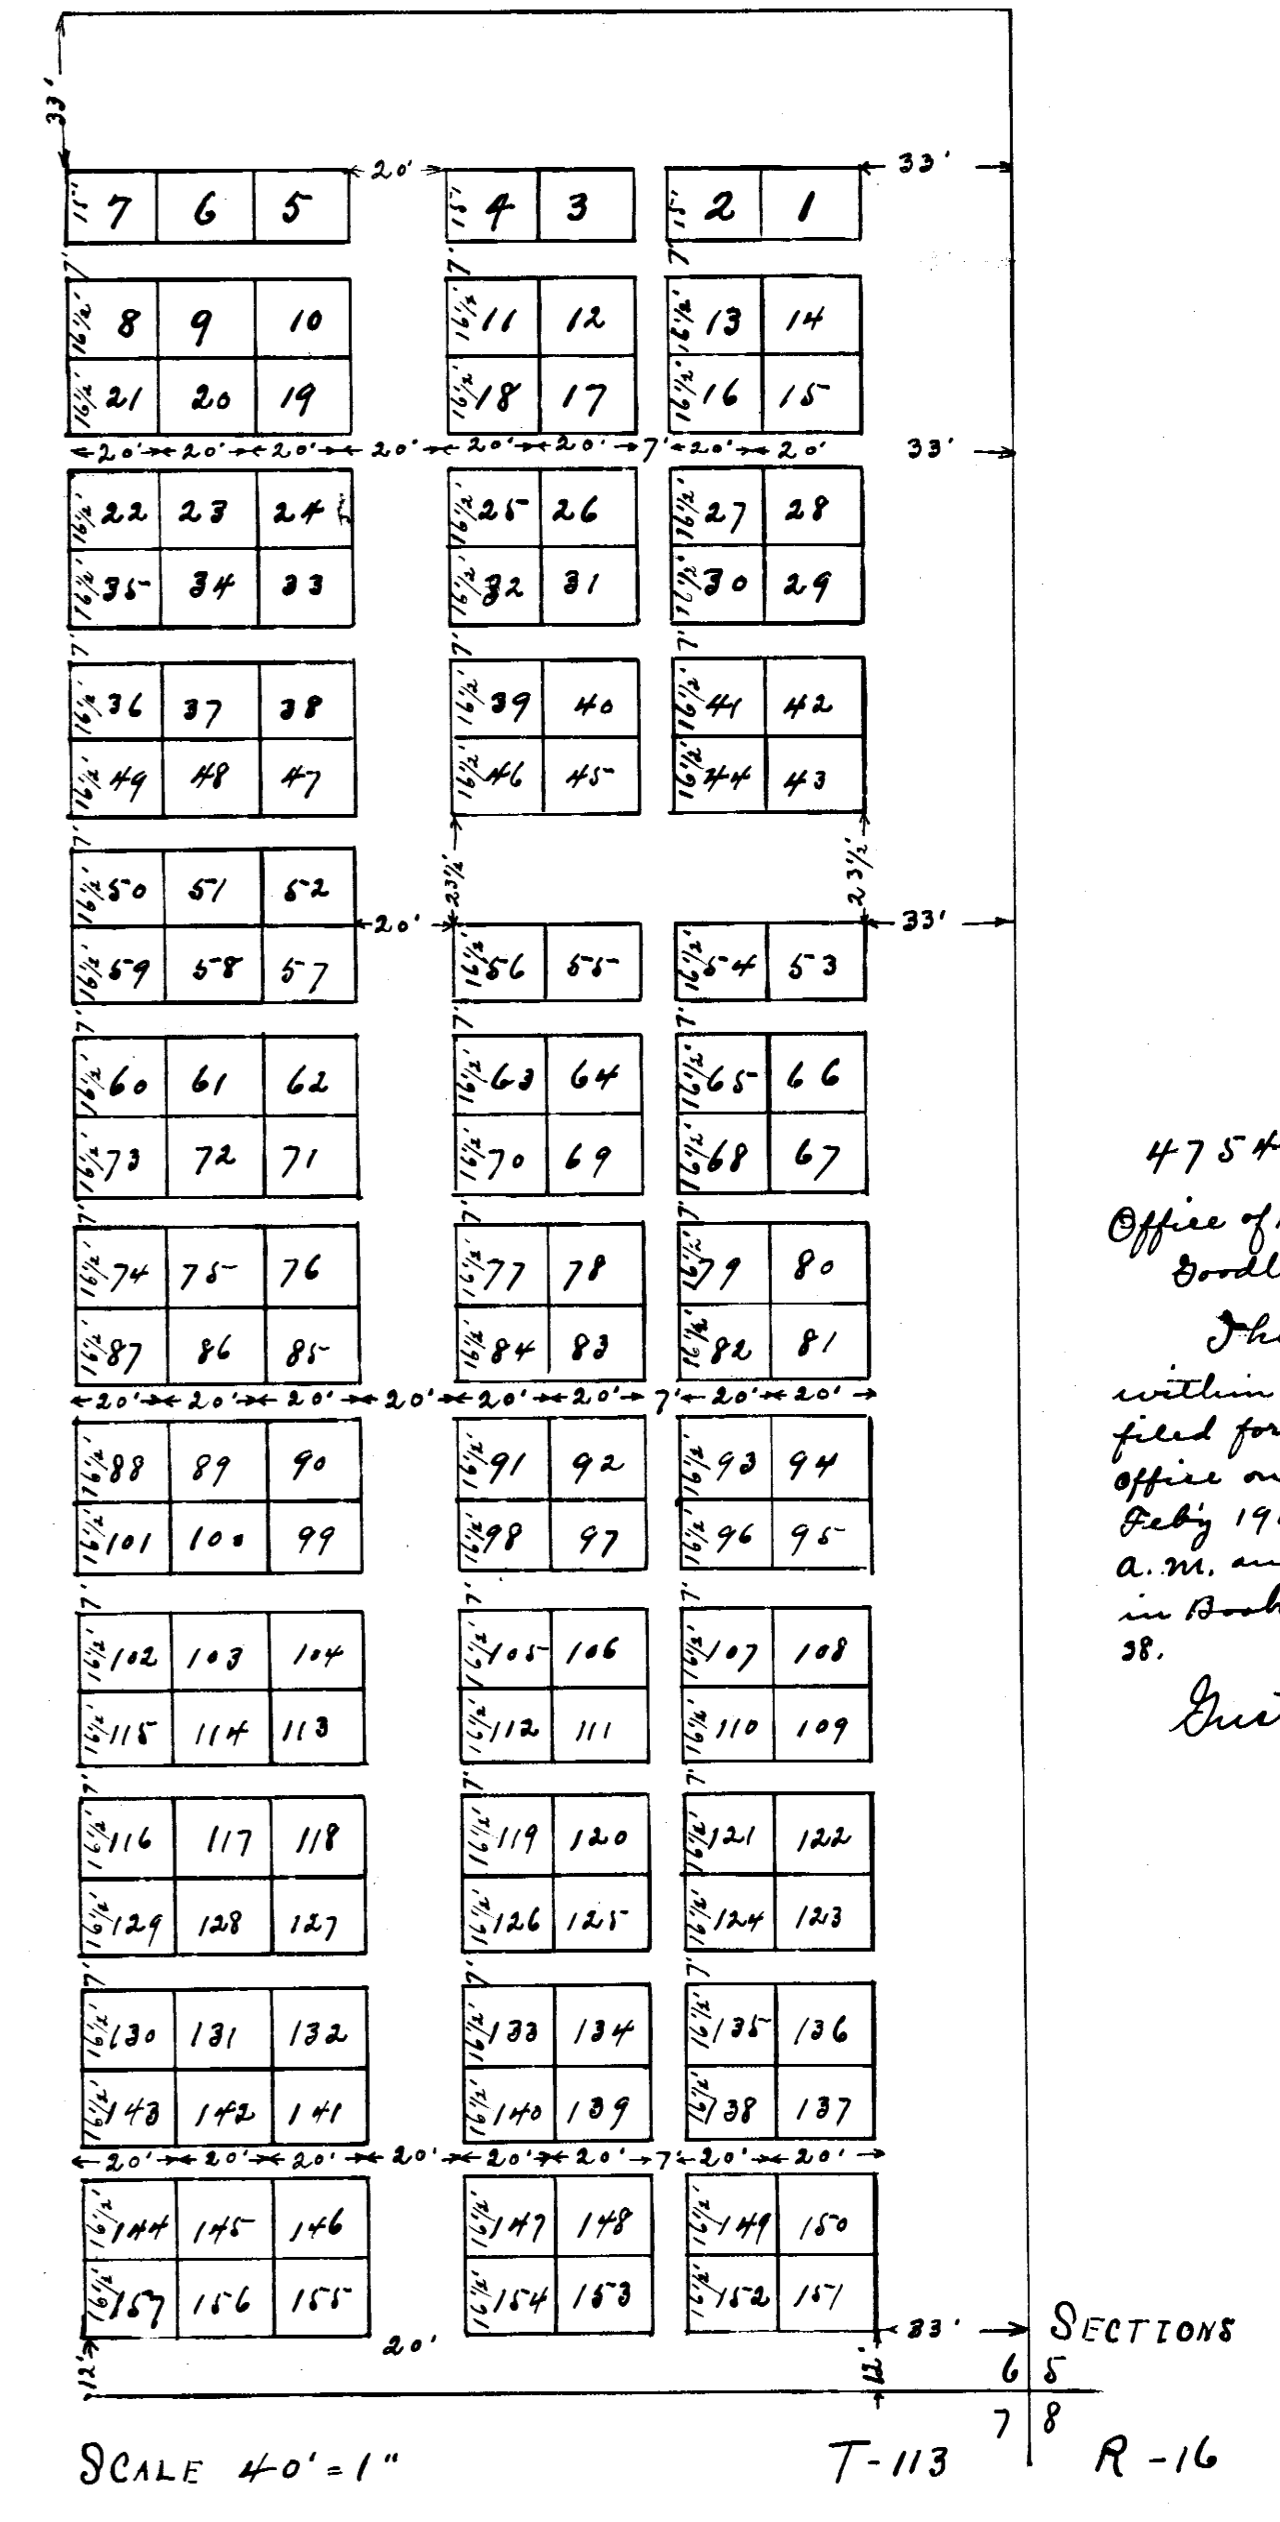 33'
20' 33'
15' 7 6 5 15' 4 3 15' 2 1
7' 7' 7'
16½' 8 9 10 16½' 11 12 16½' 13 14
16½' 21 20 19 16½' 18 17 16½' 16 15
20' 20' 20' 20' 20' 20' 7' 20' 20' 33'
16½' 22 23 24 16½' 25 26 16½' 27 28
16½' 35 34 33 16½' 32 31 16½' 30 29
7' 7' 7'
16½' 36 37 38 16½' 39 40 16½' 41 42
16½' 49 48 47 16½' 46 45 16½' 44 43
7' 23½' 23½'
16½' 50 51 52
20' 33'
16½' 59 58 57 16½' 56 55 16½' 54 53
7' 7' 7'
16½' 60 61 62 16½' 63 64 16½' 65 66
16½' 73 72 71 16½' 70 69 16½' 68 67
7' 7' 7'
16½' 74 75 76 16½' 77 78 16½' 79 80
16½' 87 86 85 16½' 84 83 16½' 82 81
20' 20' 20' 20' 20' 20' 7' 20' 20'
16½' 88 89 90 16½' 91 92 16½' 93 94
16½' 101 100 99 16½' 98 97 16½' 96 95
7' 7' 7'
16½' 102 103 104 16½' 105 106 16½' 107 108
16½' 115 114 113 16½' 112 111 16½' 110 109
7' 7' 7'
16½' 116 117 118 16½' 119 120 16½' 121 122
16½' 129 128 127 16½' 126 125 16½' 124 123
7' 7' 7'
16½' 130 131 132 16½' 133 134 16½' 135 136
16½' 143 142 141 16½' 140 139 16½' 138 137
20' 20' 20' 20' 20' 20' 7' 20' 20'
16½' 144 145 146 16½' 147 148 16½' 149 150
16½' 157 156 155 16½' 154 153 16½' 152 151
20' 33'
12' 12'
SECTIONS
6 5
7 8
SCALE 40' = 1"
T-113 R-16
4754
Office of
Goodl
within
filed for
office on
Feb'y 19
a.m. an
in Book
38.
Gus